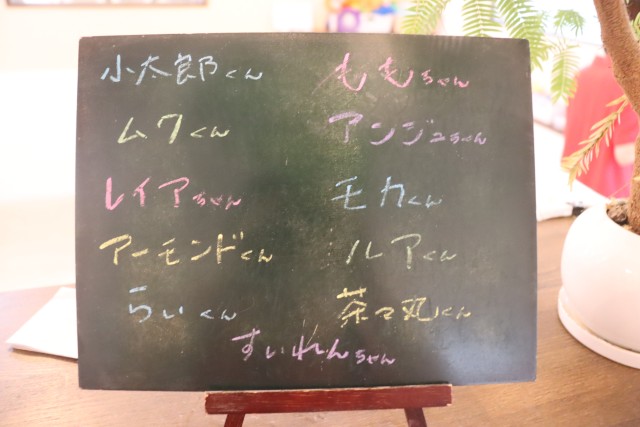 小太郎くん ももちゃん
ムクくん アンジュちゃん
レイアちゃん モカくん
アーモンドくん ルアくん
らいくん 茶々丸くん
すいれんちゃん